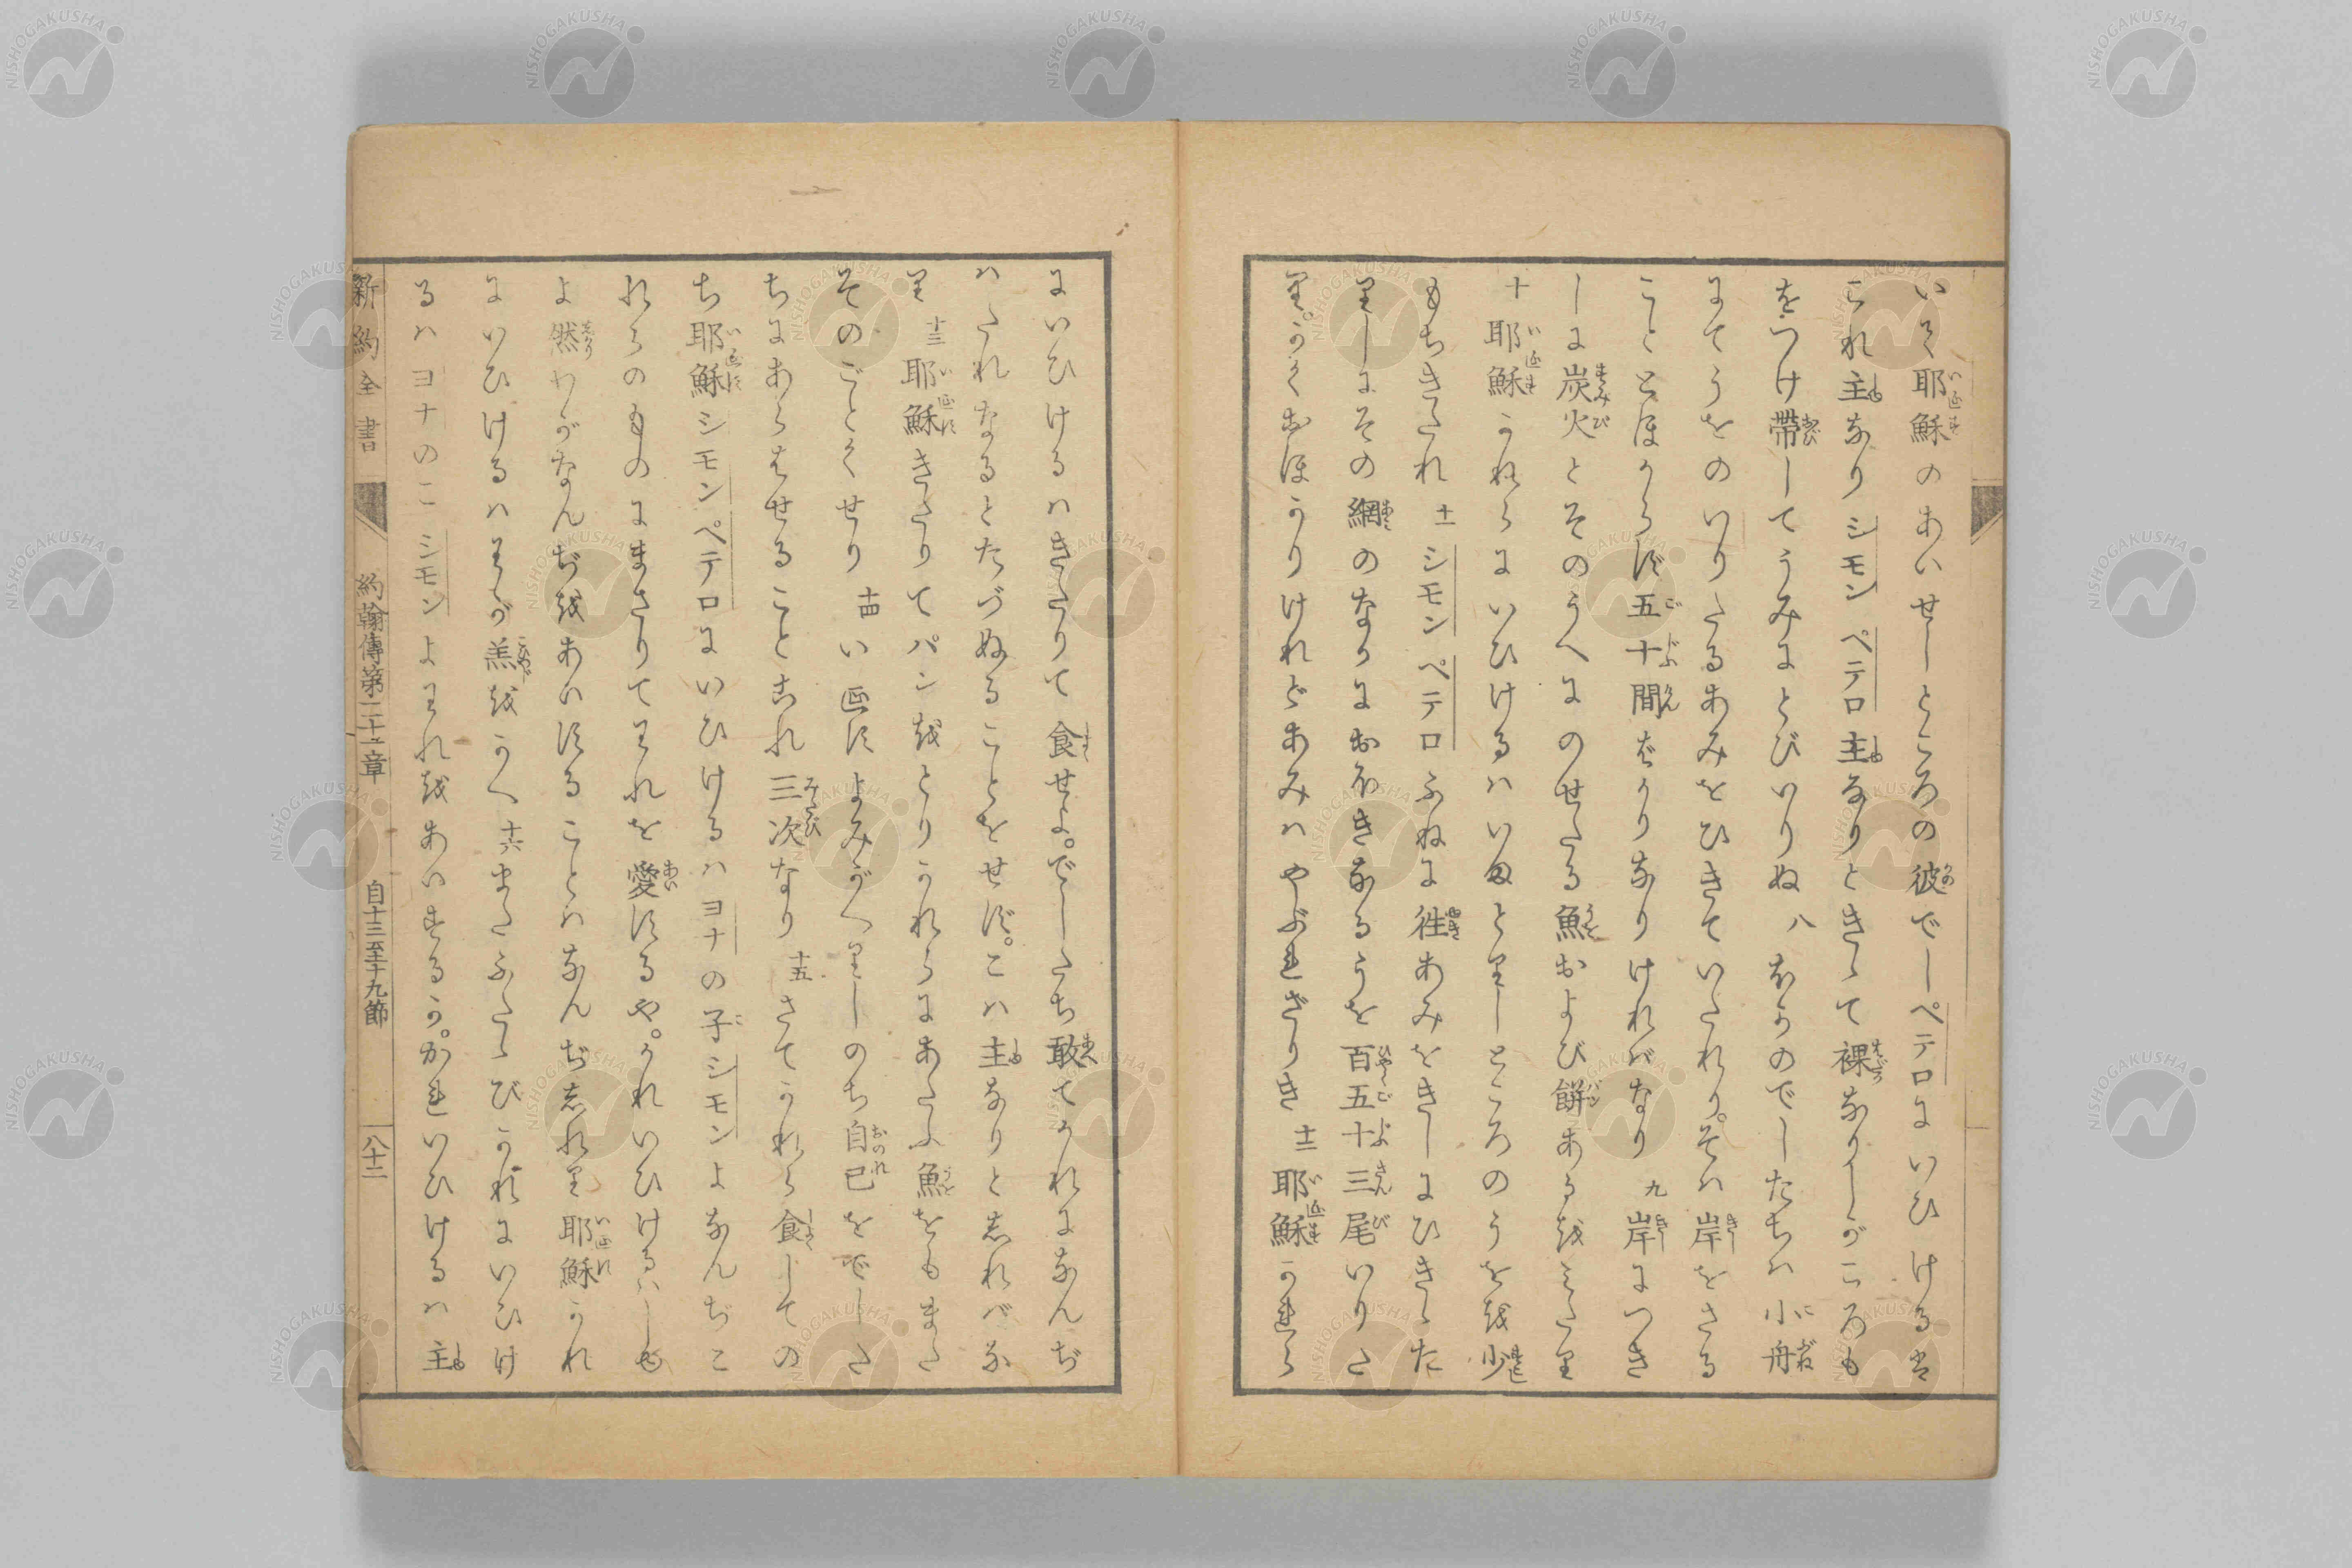 いく耶穌のあいせしところの彼でしペテロにいひけるは
これ主なりシモンペテロ主なりときゝて裸なりしがころも
をつけ帶してうみにとびいりぬ 八 ほかのでしたちハ小舟
にてうをのいりたるあみをひきていたれり。そハ岸をさる
こととほからず五十間ばかりなりければなり 九 岸につき
しに炭火とそのうへにのせたる魚および餅あるをみたり
十 耶穌かれらにいひけるハいまとりしところのうをを少
もちきたれ 十一 シモンペテロふねに徃あみをきしにひきゝた
りしにその網のなかにおほきなるうを百五十三尾いりた
り。かくおほかりけれどあみハやぶれざりき 十二 耶穌かれら
にいひけるハきたりて食せよ。でしたち敢てかれになんぢ
ハたれなるとたづぬることをせず。こハ主なりとしれバな
り 十三 耶穌きたりてパンをとりかれらにあたふ魚をもまた
そのごとくせり 十四 いゑすよみがへりしのち自己をでした
ちにあらはせることこれ三次なり 十五 さてかれら食しての
ち耶穌シモンペテロにいひけるハヨナの子シモンよなんぢこ
れらのものにまさりてわれを愛するや。かれいひけるハしゆ
よ然わがなんぢをあいすることハなんぢしれり耶穌かれ
にいひけるハわが羔をかへ 十六 またふたゝびかれにいひけ
るハヨナのこシモンよわれをあいするか。かれいひけるハ主
新約全書 約翰傳第二十一章 自十三至十九節 八十二
NISHOGAKUSHA